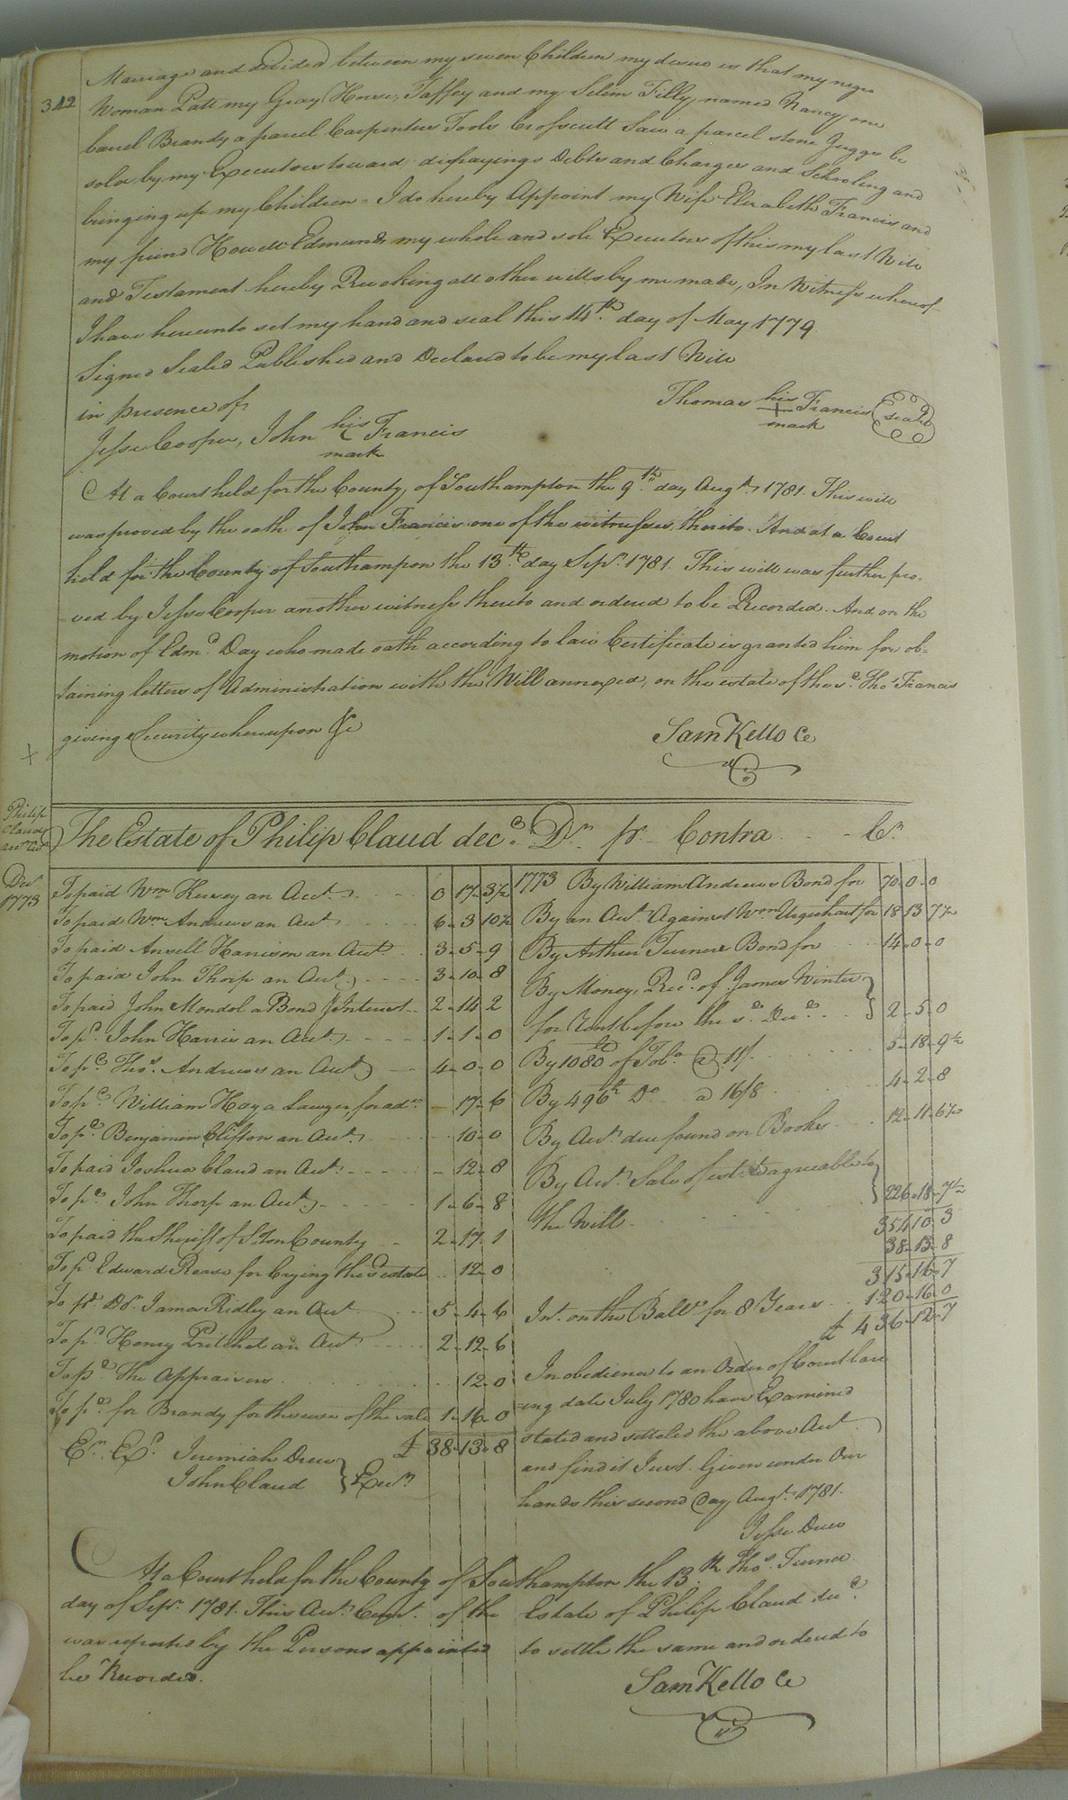 342
Marriage and divided between my seven Children my desire is that my negro
Woman Patt my Gray Horse, Taffey and my Selem Filly, named Nancy, one
barrel Brandy a parcel Carpenters Tools Crosscutt Saw a parcel stone Juggs be
sold by my Executors toward defraying Debts and Charges and Schooling and
bringing up my Children - I do hereby Appoint my Wife Elizabeth Francis and
my friend Howell Edmunds my whole and sole Executors of this my last Will
and Testament hereby Revoking all other wills by me made, In Witness whereof
I have hereunto set my hand and seal this 14th day of May 1779.
Signed Sealed Published and Declared to be my last Will
in presence of
Thomas his + mark Francis (seal)
Jesse Cooper, John his mark Francis
At a Court held for the County, of Southampton the 9th day Augt. 1781. This will
was proved by the oath of John Francis one of the witnesses thereto. And at a Court
held for the County of Southampon the 13th day Sepr. 1781. This will was further pro-
-ved by Jesse Cooper another witness thereto and ordered to be Recorded. And on the
motion of Edmd. Day who made oath according to law Certificate is granted him for ob-
taining letters of Administration with the Will annexed, on the estate of the sd. Thos. Francis
giving Security whereupon &c
Sam Kello Ce
Philip
Claud
The Estate of Philip Claud decd. Dr. pr. Contra Cr.
Decr.
1773
To paid Wm Hervey an Acct. 0 17 3½
To paid Wm. Andrews an Acct 6 3 10½
To paid Ansell Harrison an Acct 3 5 9
To paid John Thorp an Acct 3 10 8
To paid John Mondol a Bond & Interest 2 14 2
To pd. John Harris an Acct 1 1 0
To pd. Thos. Andrews an Acct 4 0 0
To pd. William Hay a Lawyer, for 17 6
To pd. Benjamin Clifton an Acct. 10 0
To paid Joshua Claud an Acct. 12 8
To pd. John Thorp an Acct 1 6 8
To paid the Sheriff of S.ton County 2 17 1
To pd. Edward Rease for Crying the sd estate 12 0
To pd. Dr. James Ridley an Acct 5 4 6
To pd. Henry Pritchet an Acct 2 12 6
To pd. the Appraisers 12 0
To pd. for Brandy for the use of the sale 1 16 0
£ 38 13 8
Er. Ex. Jeremiah Drew
John Claud } Exrs
1773 By William Andrews Bond for 70 0 0
By an Act. Against Wm Urquhart for 18 13 7½
By Arthur Turners Bond for 14 0 0
By Money, Recd. of James Winter
for Rent before the sd. Decd. } 2 5 0
By 1080 of Tobo. @ 11/. 5 18 9½
By 496 Do @ 16/8 4 2 8
By Acct. due found on Books 12 11 6½
By Acct. Sale of est. agreable to
the Will } 226 18 7½
354 10 3
38 13 8
315 16 7
Int. on the Balle. for 8 Years 120 16 0
£ 436 12 7
In obedience to an Order of Court bear
-ing date July 1780 have Examined
stated and settled the above Acct
and find it Just. Given under Our
hands this second Day Augt. 1781.
Jesse Drew
Thos. Turner
At a Court held for the County of Southampton the 13th
day of Sepr. 1781. This Acct. Currt. of the Estate of Philip Claud decd.
was reported by the Persons appointed to settle the same and ordered to
be Recorded.
Sam Kello Ce